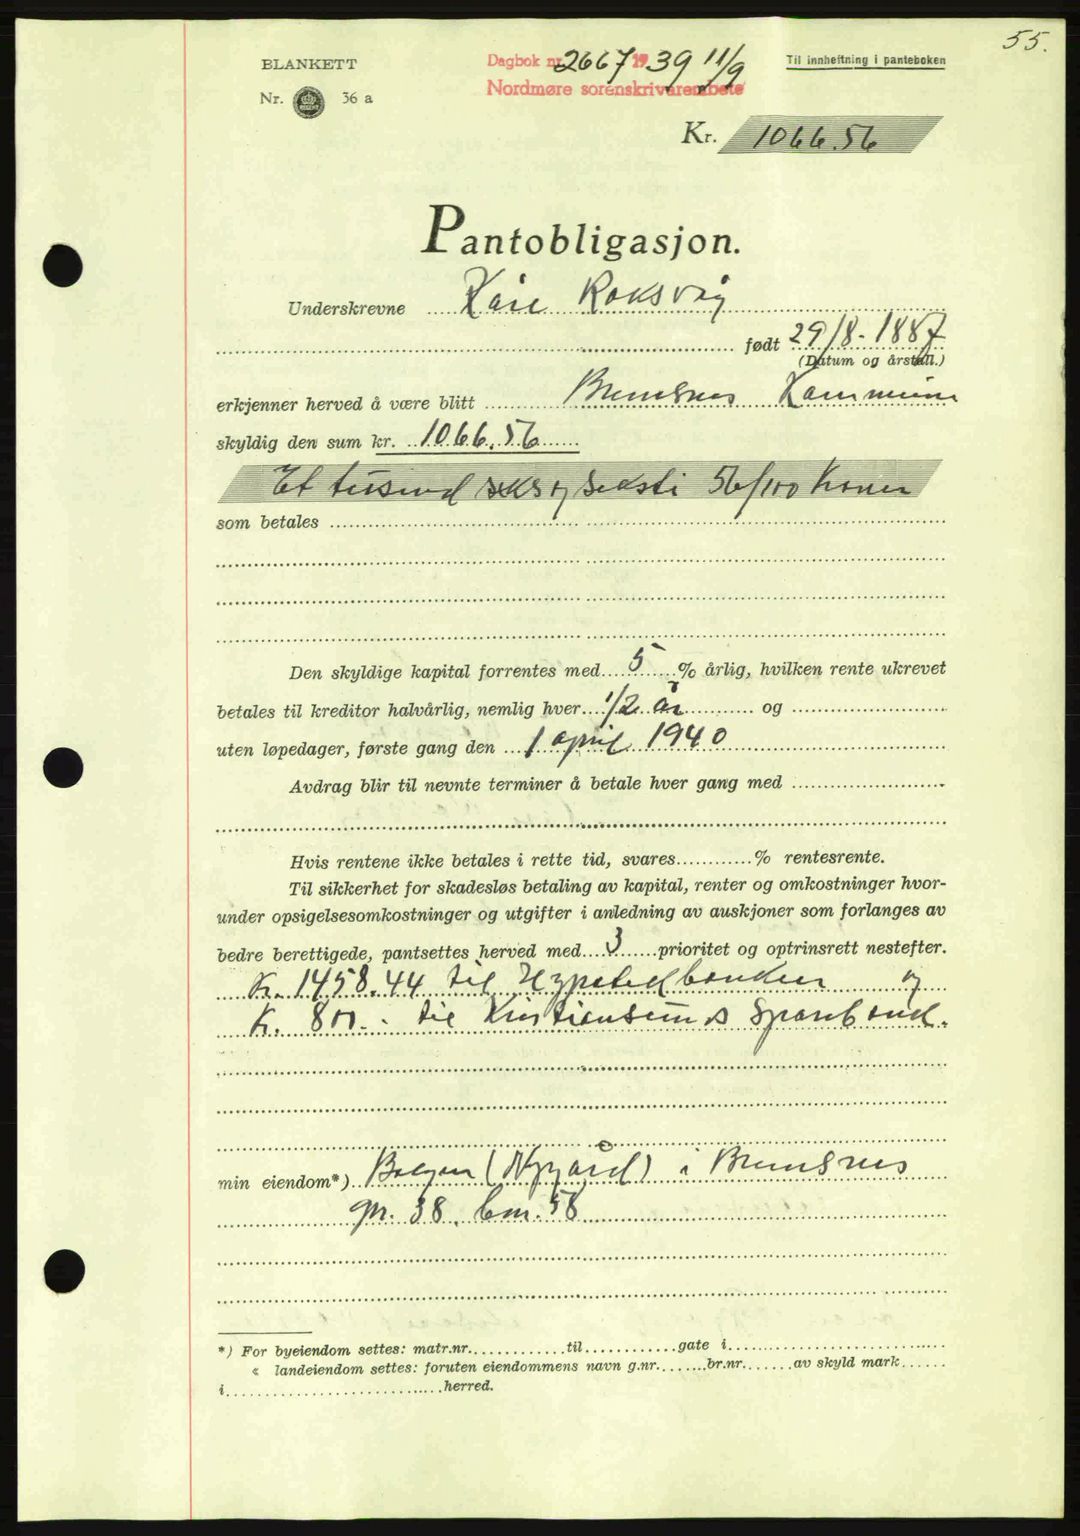 55.
BLANKETT
Nr. 36 a
Dagbok nr. 2667 1939 11/9
Nordmøre sorenskriverembete
Til innheftning i panteboken
Kr. 1066.56
Pantobligasjon.
Underskrevne Kåre Roksvåg
født 29/8-1887
(Datum og årstall.)
erkjenner herved å være blitt Bremsnes Kommune
skyldig den sum kr. 1066.56
Et tusend seks og seksti 56/100 Kroner
som betales
Den skyldige kapital forrentes med 5 % årlig, hvilken rente ukrevet
betales til kreditor halvårlig, nemlig hver 1/2 år og
uten løpedager, første gang den 1 april 1940
Avdrag blir til nevnte terminer å betale hver gang med
Hvis rentene ikke betales i rette tid, svares % rentesrente.
Til sikkerhet for skadesløs betaling av kapital, renter og omkostninger hvor-
under opsigelsesomkostninger og utgifter i anledning av auskjoner som forlanges av
bedre berettigede, pantsettes herved med 3 prioritet og optrinsrett nestefter.
Kr. 1458.44 til Hypotekbanken og
Kr. 800.- til Kristiansunds Sparebank.
min eiendom*) (Nygård) i Bremsnes
gnr. 38, bnr. 58
*) For byeiendom settes: matr.nr. til gate i
« landeiendom settes: foruten eiendommens navn g.nr. br.nr. av skyld mark
i herred.